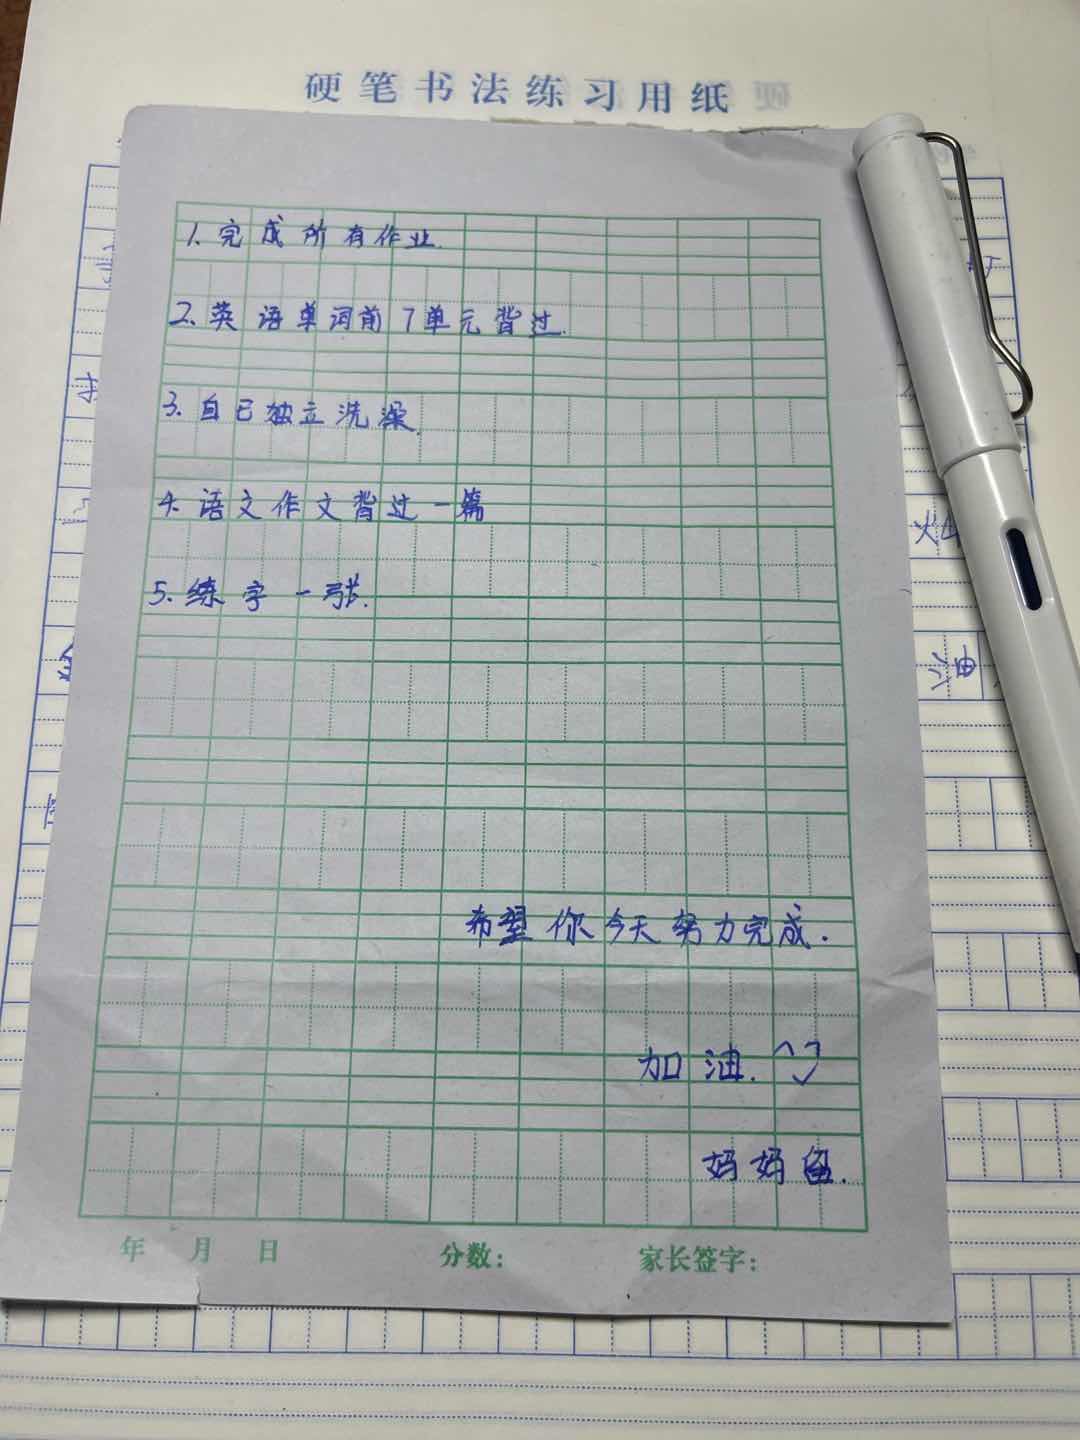 硬笔书法练习用纸
1.完成所有作业.
2.英语单词前7单元背过.
3.自己独立洗澡.
4.语文作文背过一篇
5.练字一张.
希望你今天努力完成.
加油.
妈妈留.
年 月 日 分数: 家长签字:
油